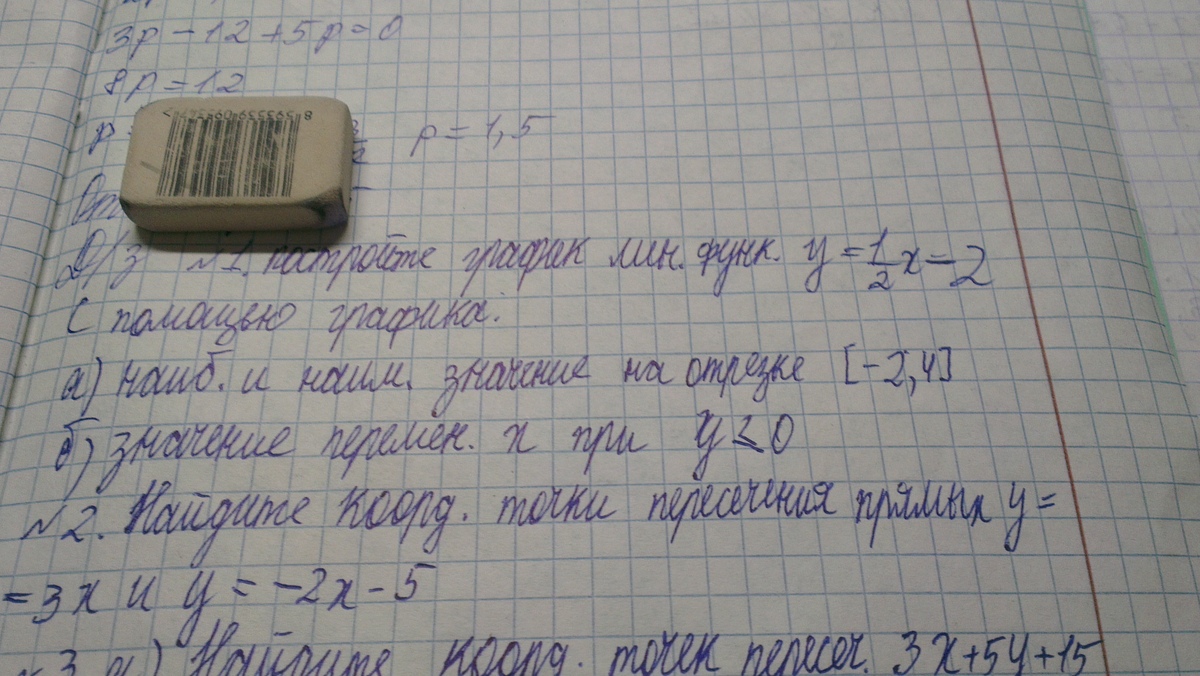 3p - 12 + 5p = 0
8p = 12
p = 1,5
Д/з №1. постройте график лин. функ. y = 1/2 x - 2
С помощью графика:
а) наиб. и наим. значение на отрезке [-2; 4]
б) значение перемен. x при y ≤ 0
№2. Найдите коорд. точки пересечения прямых y =
= 3x и y = -2x - 5
№3 а) Найдите коорд. точек пересеч. 3x+5y+15